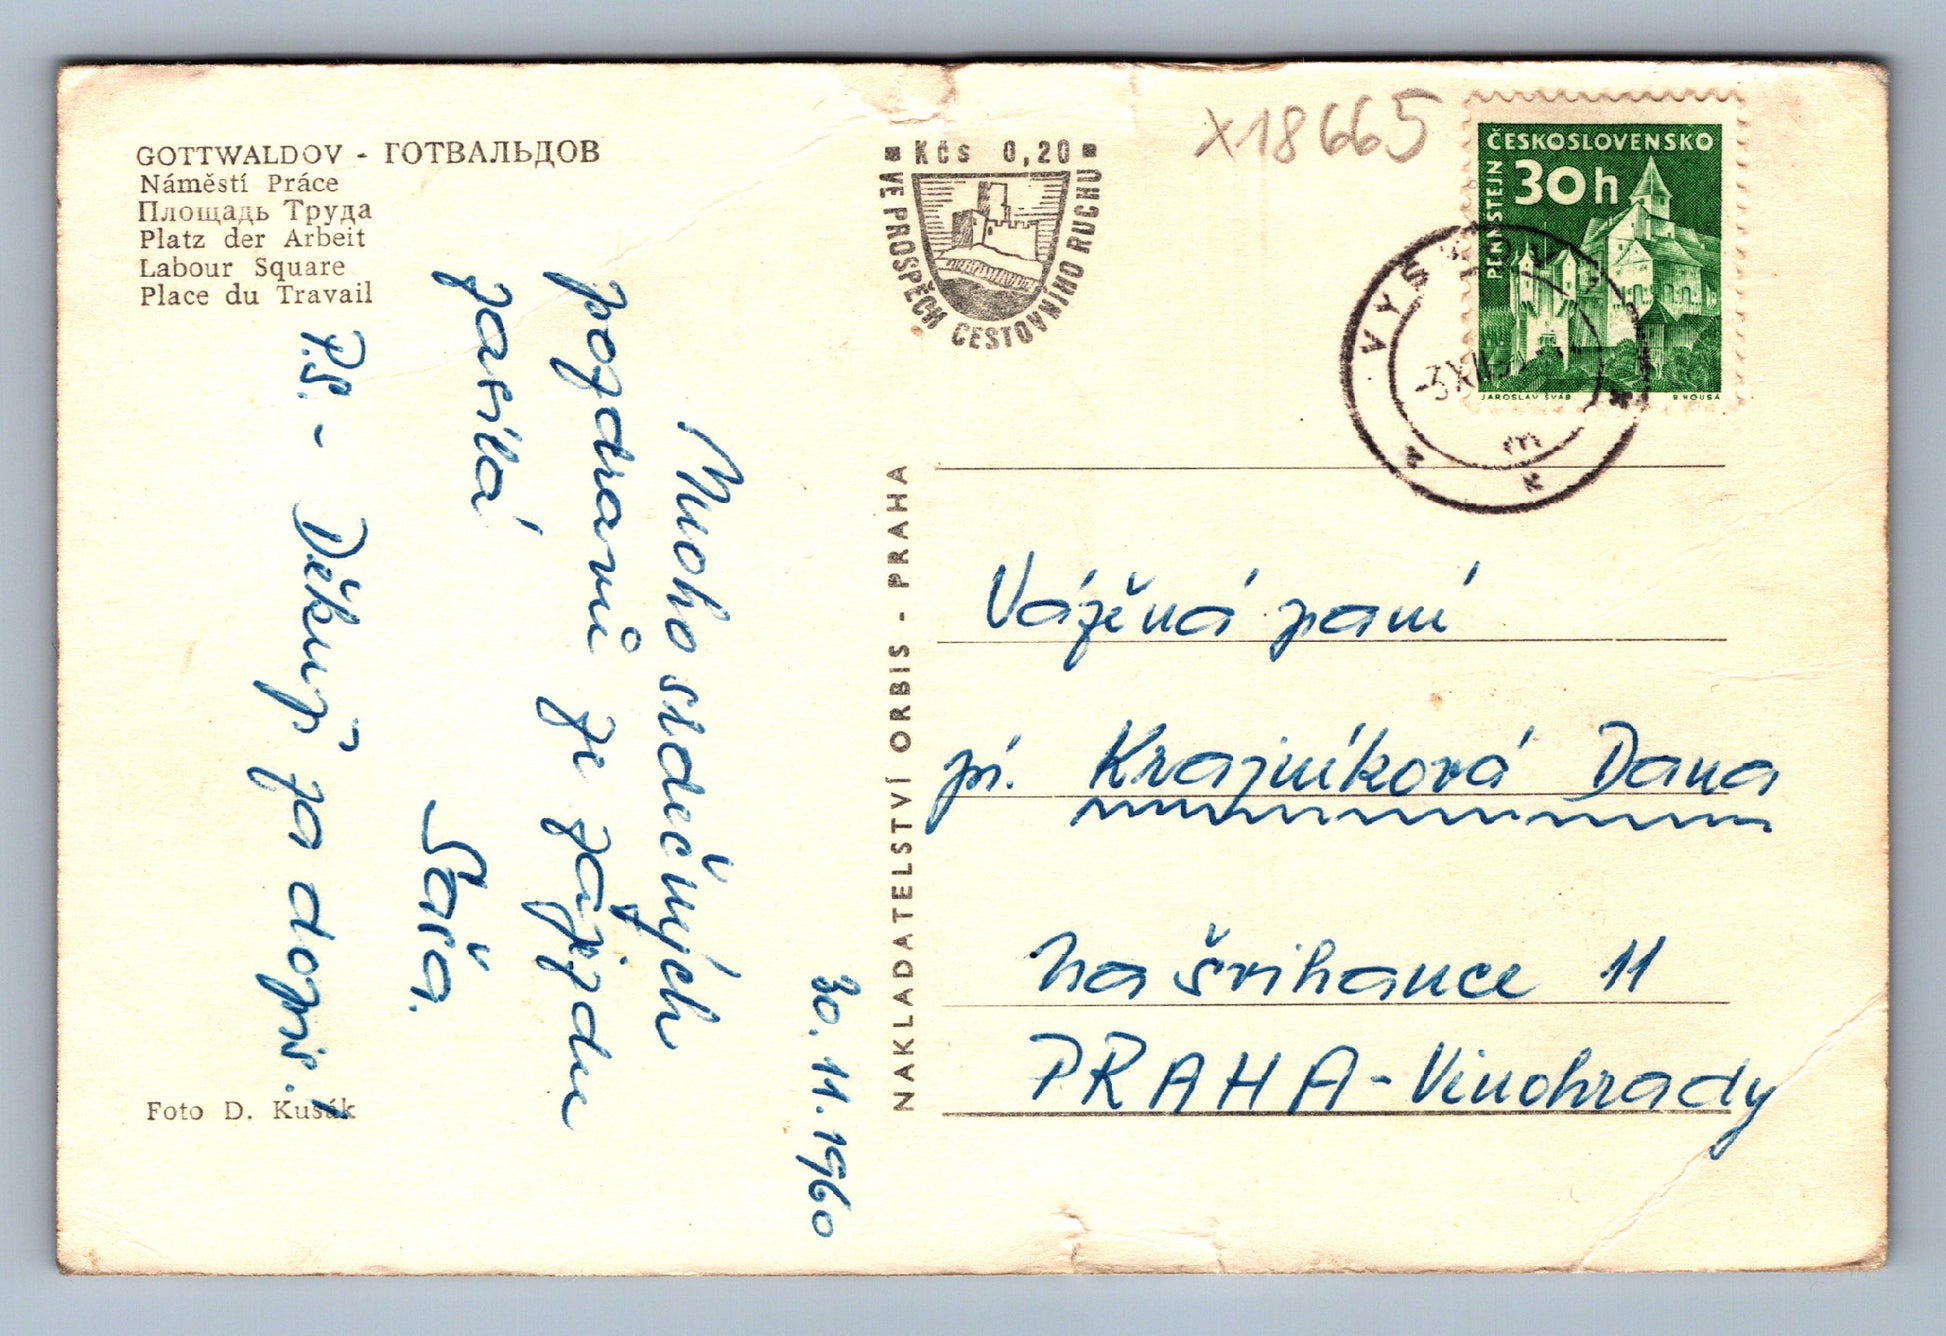 GOTTWALDOV - ГОТВАЛЬДОВ
Náměstí Práce
Площадь Труда
Platz der Arbeit
Labour Square
Place du Travail
Kčs 0,20
VE PROSPĚCH CESTOVNÍHO RUCHU
X18665
ČESKOSLOVENSKO
30h
PERNŠTEJN
JAROSLAV ŠVÁB
VYŠKOV
30. 11. 1960
Mnoho srdečných
pozdravů ze zájezdu
zasílá
Saša.
P.S. - Děkuji za dopis!
NAKLADATELSTVÍ ORBIS - PRAHA
Vážená paní
pí. Krajníková Dana
Na Švihance 11
PRAHA - Vinohrady
Foto D. Kusák